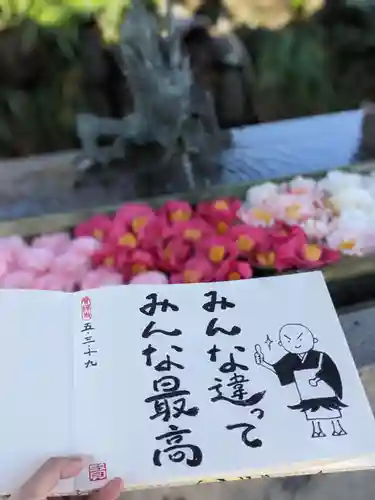 みんな違って
みんな最高
五・三・十九